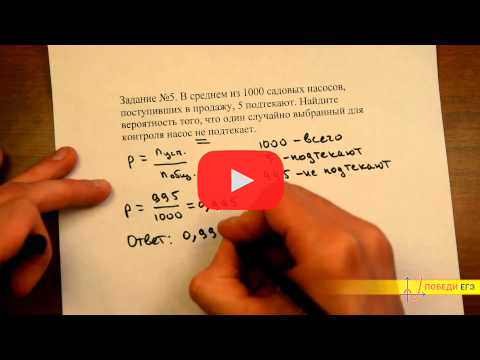 Задание №5. В среднем из 1000 садовых насосов,
поступивших в продажу, 5 подтекают. Найдите
вероятность того, что один случайно выбранный для
контроля насос не подтекает.
P = nусп. / nобщ.
1000 - всего
5 - подтекают
995 - не подтекают
P = 995 / 1000 = 0,995
Ответ: 0,99
ПОБЕДИ ЕГЭ